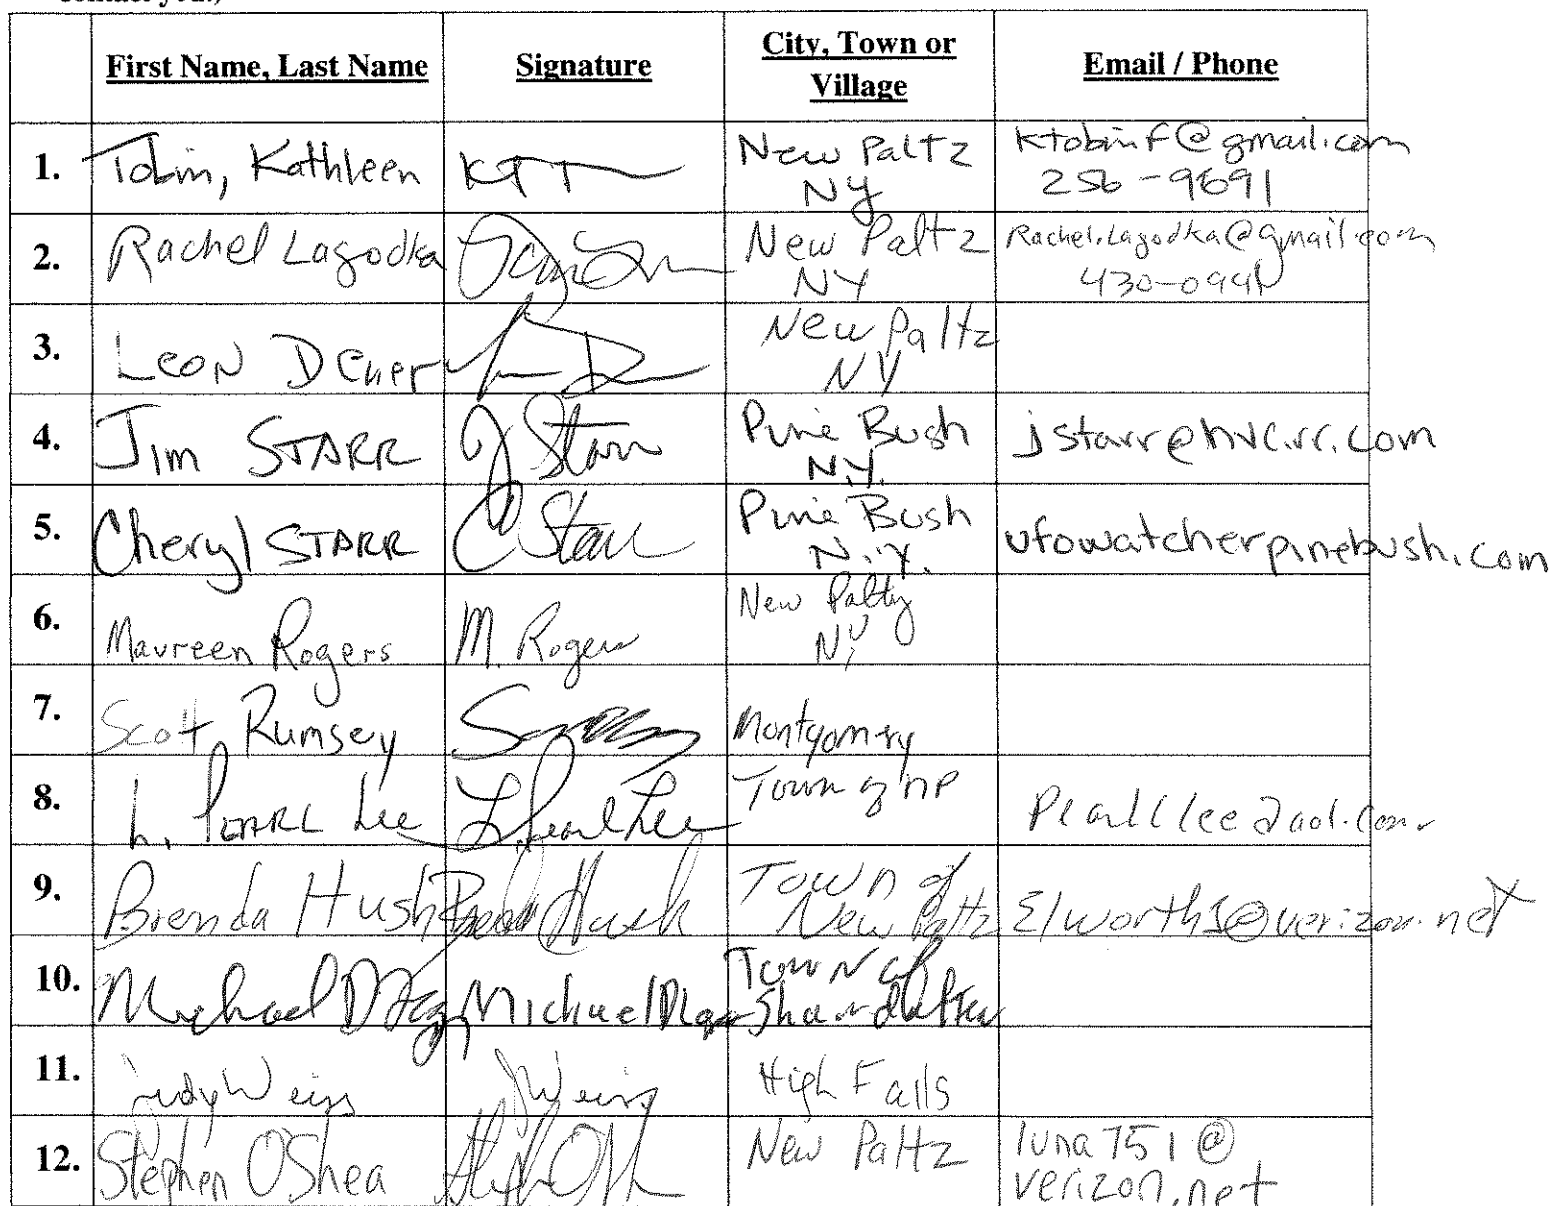 First Name, Last Name Signature City, Town or Village Email / Phone
1. Tobin, Kathleen KTT New Paltz NY ktobinf@gmail.com 256-9691
2. Rachel Lagodka New Paltz NY Rachel.Lagodka@gmail.com 430-0991
3. Leon New Paltz NY
4. Jim STARR J Starr Pine Bush N.Y. jstarr@hvc.rr.com
5. Cheryl STARR C Starr Pine Bush N.Y. ufowatcherpinebush.com
6. Maureen Rogers M. Rogers New Paltz NY
7. Scott Rumsey Montgomery
8. L. PEARL Lee L. Pearl Lee Town of NP
9. Brenda Hush Town of New Paltz
10. Michael Michael Town of Shandaken
11. Judy Weiss J Weiss High Falls
12. Stephen O'Shea New Paltz luna751@
verizon.net